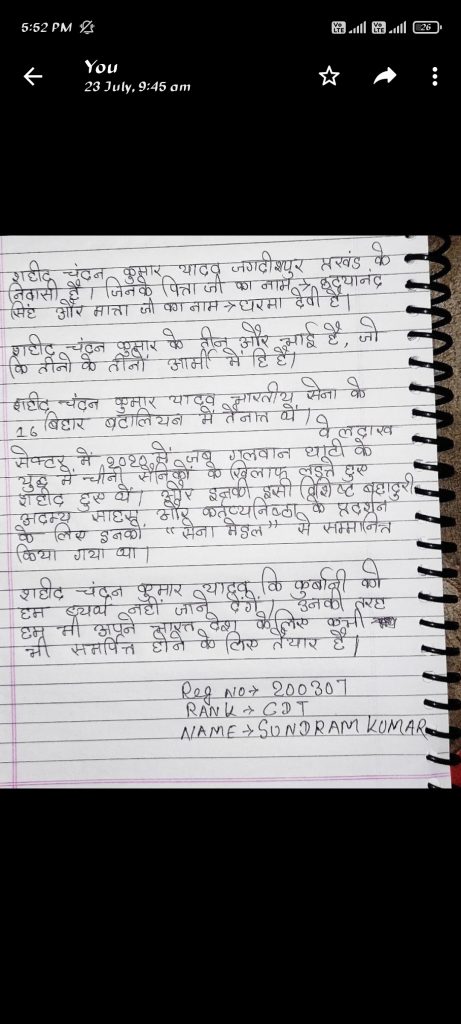 5:52 PM
Vo LTE
Vo LTE
26
You
23 July, 9:45 am
शहीद चंदन कुमार यादव जगदीशपुर प्रखंड के
निवासी है। जिनके पित्ता जी का नाम → हृदयानंद
सिंह और मात्ता जी का नाम → धरमा देवी है।
शहीद चंदन कुमार के तीन और भाई है, जो
कि तीनो के तीनों आर्मी में हि है।
शहीद चंदन कुमार यादव भारतीय सेना के
16 बिहार बटालियन में तैनात थे।
वे लद्दाख
सेक्टर में 2020 में जब गलवान घाटी के
युद्ध में चीनी सैनिकों के खिलाफ लड़ते हुए
शहीद हुए थे। और इनकी इसी विशिष्ट बहादुरी
अदम्य साहस और कर्तव्यनिष्ठा के प्रदर्शन
के लिए इनको "सेना मेडल" से सम्मानित
किया गया था।
शहीद चंदन कुमार यादव कि कुर्बानी को
हम व्यर्थ नहीं जाने देंगे। उनकी तरह
हम भी अपने भारत देश के लिए कभी
भी समर्पित होने के लिए तैयार है।
Reg NO→ 200307
RANK → CDT
NAME → SUNDRAM KUMAR